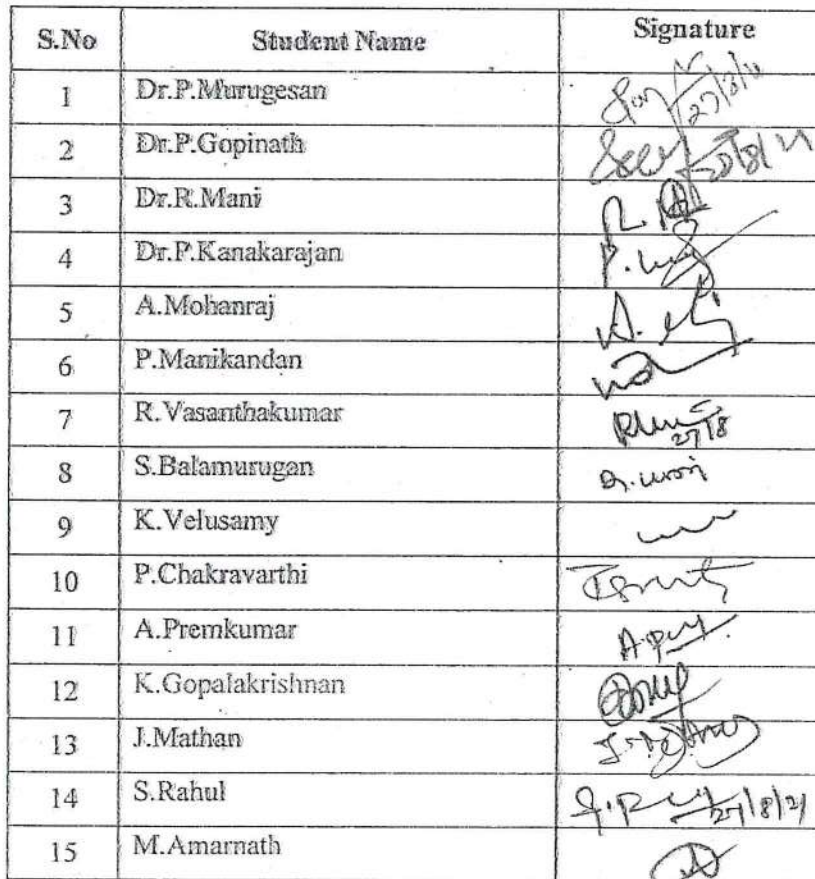 S.No Student Name Signature
1 Dr.P.Murugesan
2 Dr.P.Gopinath
3 Dr.R.Mani
4 Dr.P.Kanakarajan
5 A.Mohanraj
6 P.Manikandan
7 R.Vasanthakumar 27/8
8 S.Balamurugan
9 K.Velusamy
10 P.Chakravarthi
11 A.Premkumar
12 K.Gopalakrishnan
13 J.Mathan
14 S.Rahul 27/8/21
15 M.Amarnath